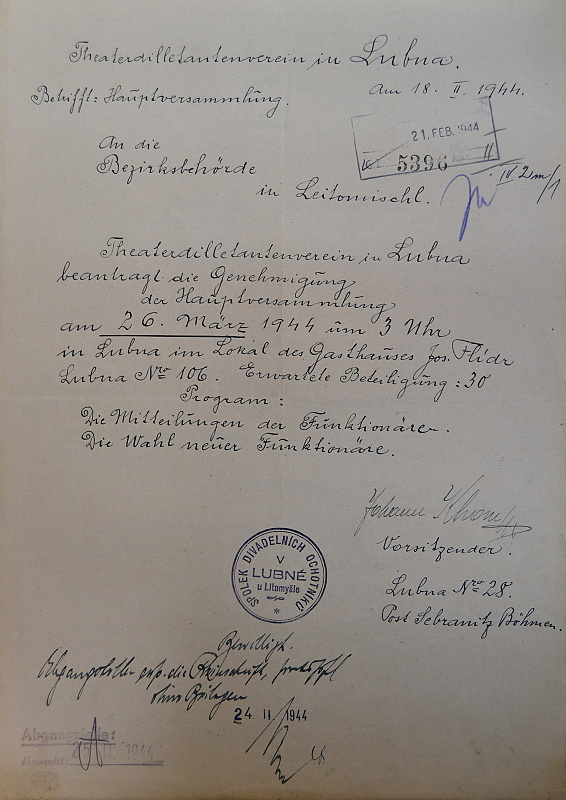 Theaterdilletantenverein in Lubna.
Betrifft: Hauptversammlung.
Am 18. II. 1944.
21. FEB. 1944
5396
II
IV 2m/1
An die
Bezirksbehörde
in Leitomischl.
Theaterdilletantenverein in Lubna
beantragt die Genehmigung
der Hauptversammlung
am 26. März 1944 um 3 Uhr
in Lubna im Lokal des Gasthauses Jos. Flídr
Lubna Nro 106. Erwartete Beteiligung: 30
Program:
Die Mitteilungen der Funktionäre.
Die Wahl neuer Funktionäre.
Johann
Vorsitzender.
Lubna Nro 28.
Post Sebranitz Böhmen.
SPOLEK DIVADELNÍCH OCHOTNÍKŮ
V
LUBNÉ
u Litomyšle
Bewilligt.
Abgangstelle die Reinschrift,
ohne Beilagen
24. II. 1944
Abgangstelle:
25. II. 1944